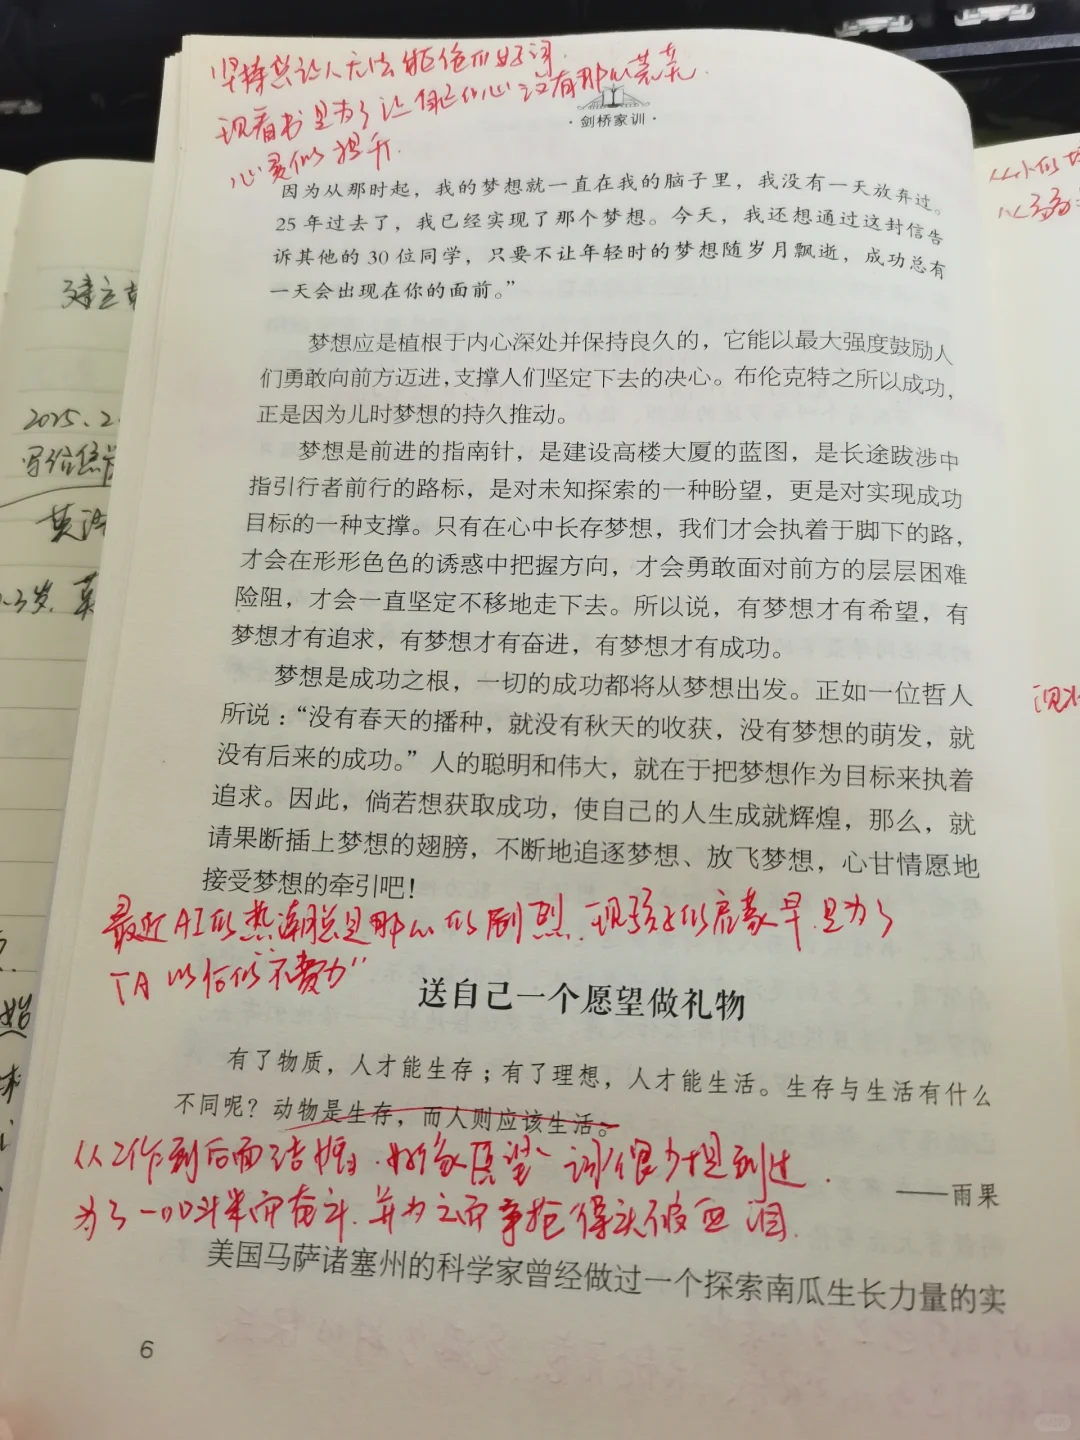 坚持总让人无法拒绝的好词.
现看书是为了让自己的心没有那么荒芜.
心灵的提升.
·剑桥家训·
因为从那时起，我的梦想就一直在我的脑子里，我没有一天放弃过。
25年过去了，我已经实现了那个梦想。今天，我还想通过这封信告
诉其他的30位同学，只要不让年轻时的梦想随岁月飘逝，成功总有
一天会出现在你的面前。”
梦想应是植根于内心深处并保持良久的，它能以最大强度鼓励人
们勇敢向前方迈进，支撑人们坚定下去的决心。布伦克特之所以成功，
正是因为儿时梦想的持久推动。
梦想是前进的指南针，是建设高楼大厦的蓝图，是长途跋涉中
指引行者前行的路标，是对未知探索的一种盼望，更是对实现成功
目标的一种支撑。只有在心中长存梦想，我们才会执着于脚下的路，
才会在形形色色的诱惑中把握方向，才会勇敢面对前方的层层困难
险阻，才会一直坚定不移地走下去。所以说，有梦想才有希望，有
梦想才有追求，有梦想才有奋进，有梦想才有成功。
梦想是成功之根，一切的成功都将从梦想出发。正如一位哲人
所说：“没有春天的播种，就没有秋天的收获，没有梦想的萌发，就
没有后来的成功。”人的聪明和伟大，就在于把梦想作为目标来执着
追求。因此，倘若想获取成功，使自己的人生成就辉煌，那么，就
请果断插上梦想的翅膀，不断地追逐梦想、放飞梦想，心甘情愿地
接受梦想的牵引吧！
最近AI的热潮总是那么的剧烈.现孩子的启蒙早.是为了
送自己一个愿望做礼物
有了物质，人才能生存；有了理想，人才能生活。生存与生活有什么
不同呢？动物是生存，而人则应该生活。
从工作到后面结婚.好像愿望 词很少提到过.
——雨果
为了一口斗米而奋斗.并为之而争抢得头破血泪.
美国马萨诸塞州的科学家曾经做过一个探索南瓜生长力量的实
6
建立
2025.2.
写信
英语
-3岁.英